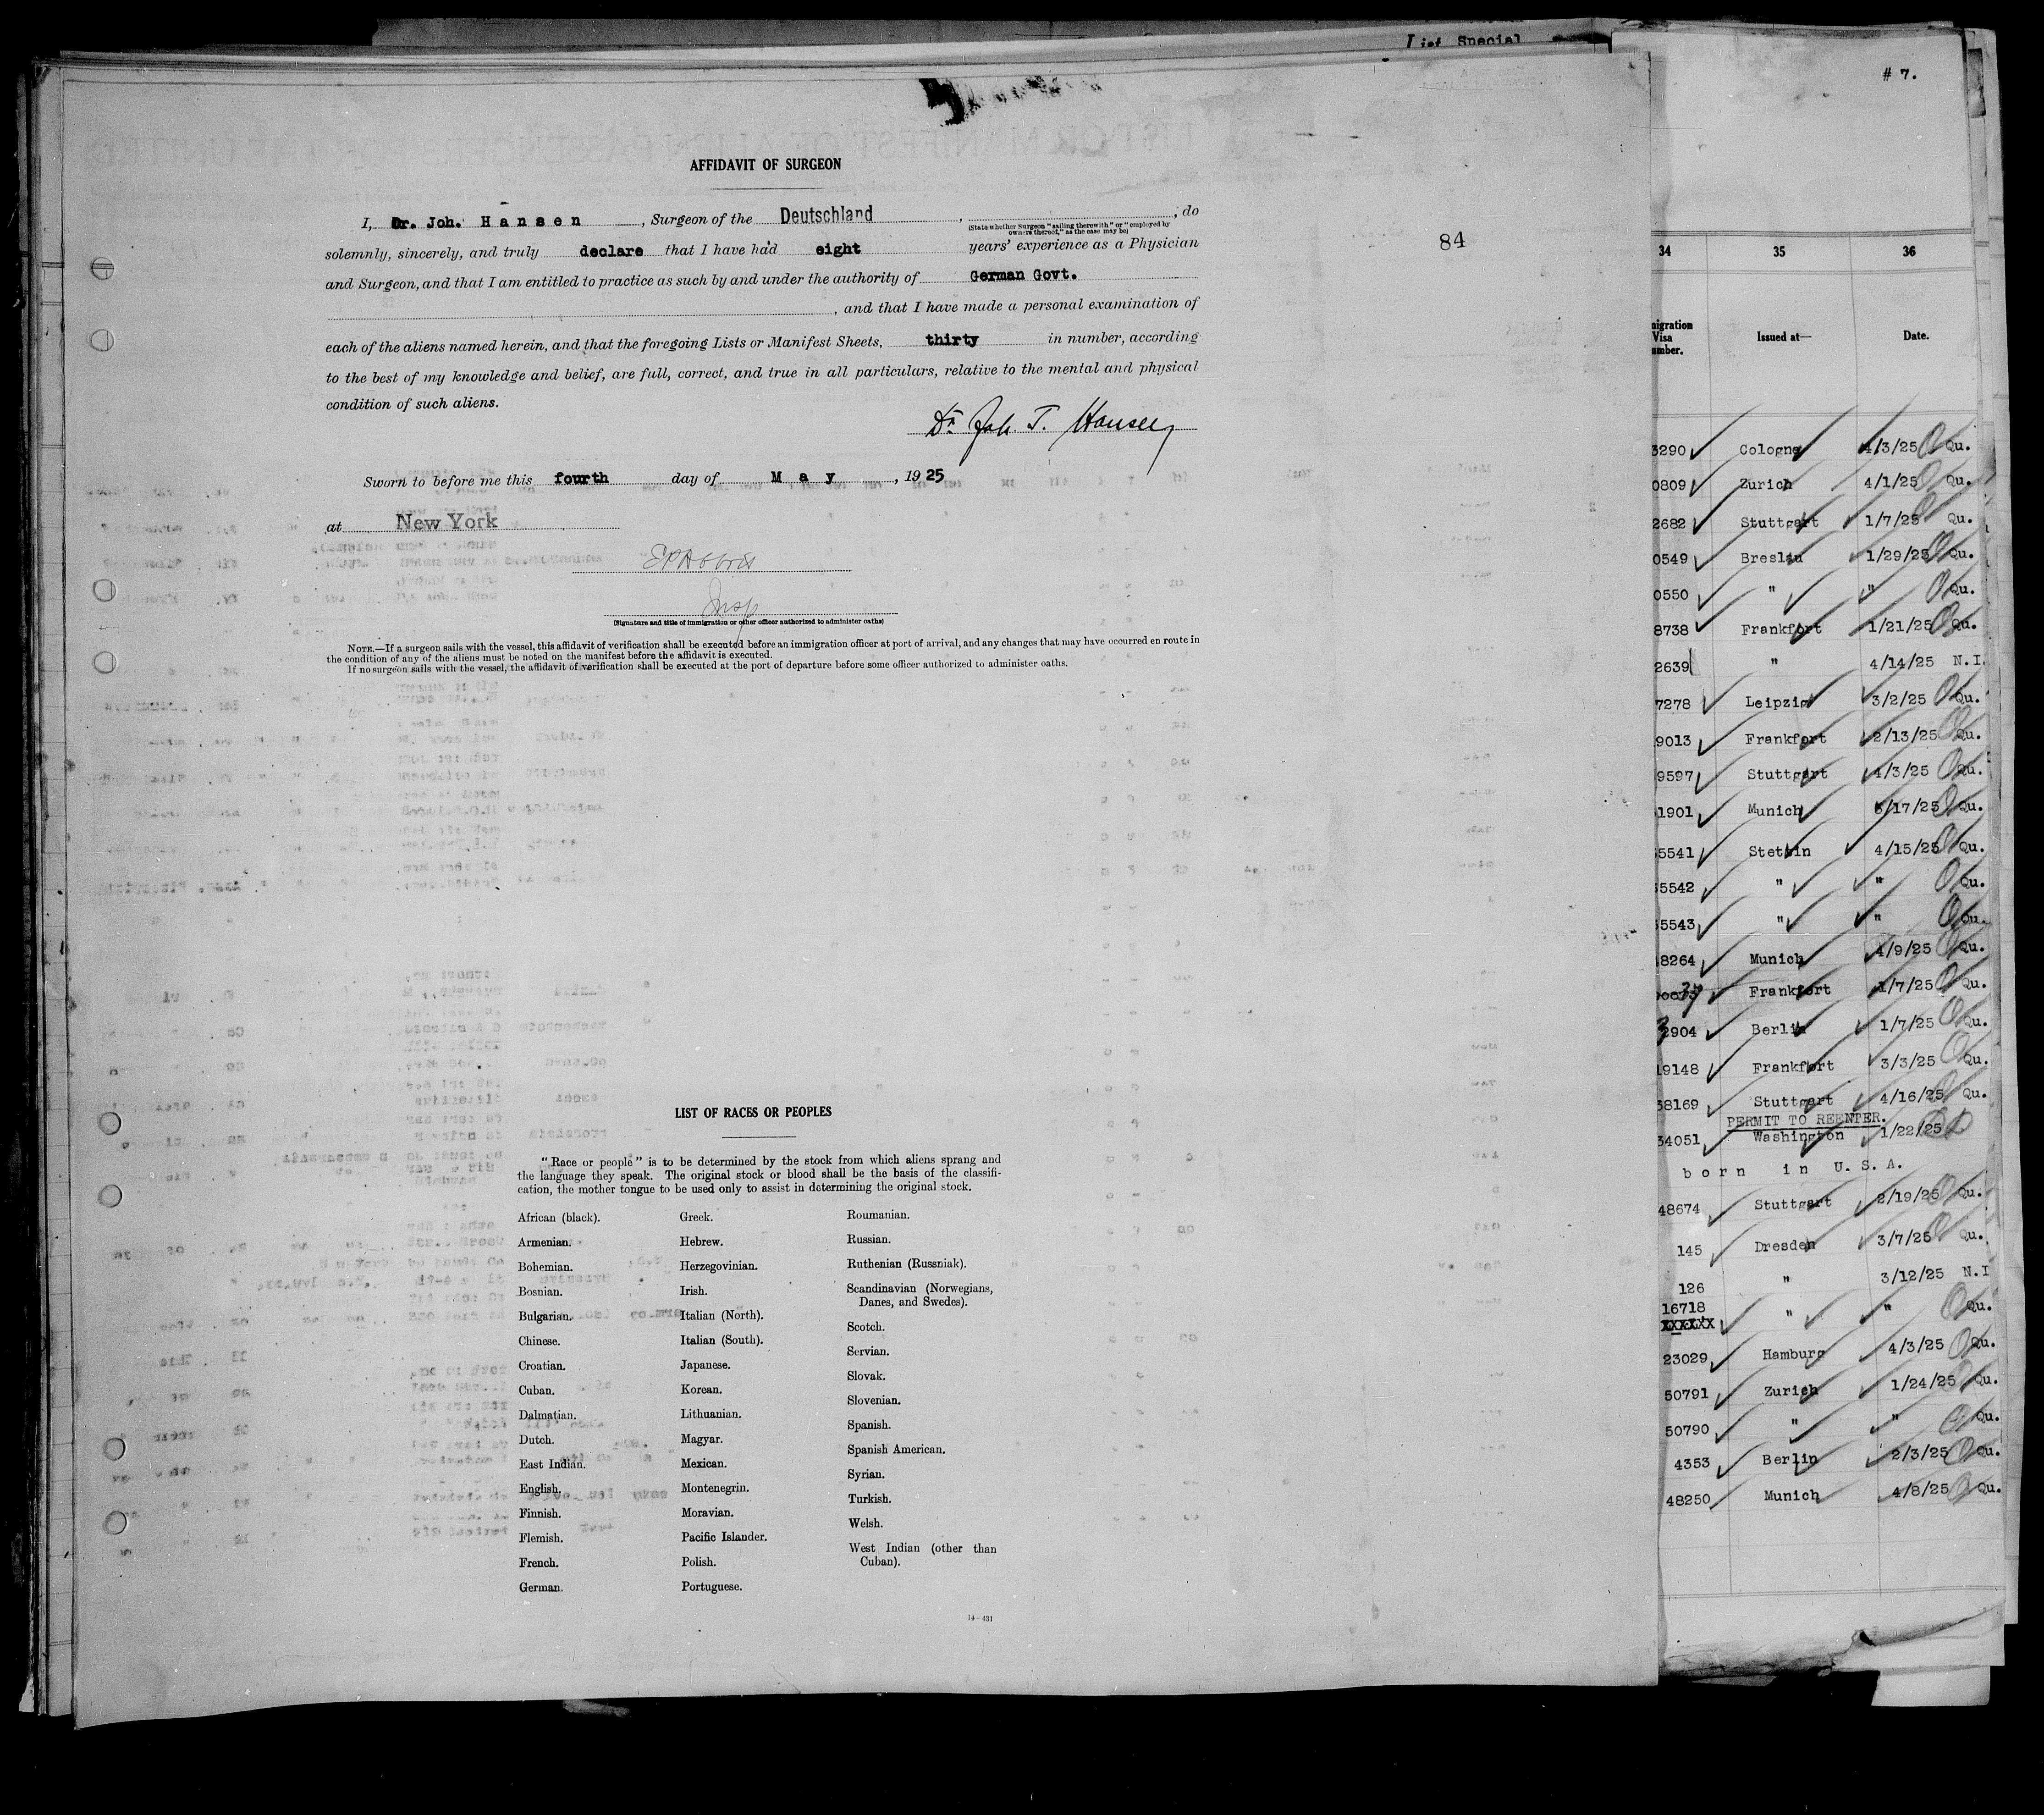 List Special
# 7.
AFFIDAVIT OF SURGEON
I, Dr. Joh. Hansen, Surgeon of the Deutschland, , do
(State whether Surgeon "sailing therewith" or "employed by owners thereof," as the case may be)
solemnly, sincerely, and truly declare that I have had eight years' experience as a Physician
and Surgeon, and that I am entitled to practice as such by and under the authority of German Govt.
, and that I have made a personal examination of
each of the aliens named herein, and that the foregoing Lists or Manifest Sheets, thirty in number, according
to the best of my knowledge and belief, are full, correct, and true in all particulars, relative to the mental and physical
condition of such aliens.
Dr. Joh. T. Hansen
Sworn to before me this fourth day of May, 1925
at New York
Insp
(Signature and title of immigration or other officer authorized to administer oaths)
NOTE.—If a surgeon sails with the vessel, this affidavit of verification shall be executed before an immigration officer at port of arrival, and any changes that may have occurred en route in
the condition of any of the aliens must be noted on the manifest before the affidavit is executed.
If no surgeon sails with the vessel, the affidavit of verification shall be executed at the port of departure before some officer authorized to administer oaths.
84
LIST OF RACES OR PEOPLES
"Race or people" is to be determined by the stock from which aliens sprang and
the language they speak. The original stock or blood shall be the basis of the classifi-
cation, the mother tongue to be used only to assist in determining the original stock.
African (black).
Armenian.
Bohemian.
Bosnian.
Bulgarian.
Chinese.
Croatian.
Cuban.
Dalmatian.
Dutch.
East Indian.
English.
Finnish.
Flemish.
French.
German.
Greek.
Hebrew.
Herzegovinian.
Irish.
Italian (North).
Italian (South).
Japanese.
Korean.
Lithuanian.
Magyar.
Mexican.
Montenegrin.
Moravian.
Pacific Islander.
Polish.
Portuguese.
Roumanian.
Russian.
Ruthenian (Russniak).
Scandinavian (Norwegians,
Danes, and Swedes).
Scotch.
Servian.
Slovak.
Slovenian.
Spanish.
Spanish American.
Syrian.
Turkish.
Welsh.
West Indian (other than
Cuban).
14—431
34 35 36
migration
Visa
umber.
Issued at—
Date.
3290 Cologne 4/3/25 Qu.
0809 Zurich 4/1/25 Qu.
2682 Stuttgart 1/7/25 Qu.
0549 Breslau 1/29/25 Qu.
0550 " " Qu.
8738 Frankfort 1/21/25 Qu.
2639 " 4/14/25 N.I.
7278 Leipzig 3/2/25 Qu.
9013 Frankfort 2/13/25 Qu.
9597 Stuttgart 4/3/25 Qu.
1901 Munich /17/25 Qu.
5541 Stettin 4/15/25 Qu.
5542 " " Qu.
5543 " " Qu.
8264 Munich 4/9/25 Qu.
Frankfort 1/7/25 Qu.
2904 Berlin 1/7/25 Qu.
19148 Frankfort 3/3/25 Qu.
38169 Stuttgart 4/16/25 Qu.
PERMIT TO REENTER.
34051 Washington 1/22/25
born in U.S.A.
48674 Stuttgart 2/19/25 Qu.
145 Dresden 3/7/25 Qu.
126 " 3/12/25 N.I
16718 " " Qu.
XXXXXX
23029 Hamburg 4/3/25 Qu.
50791 Zurich 1/24/25 Qu.
50790 " " Qu.
4353 Berlin 2/3/25 Qu.
48250 Munich 4/8/25 Qu.